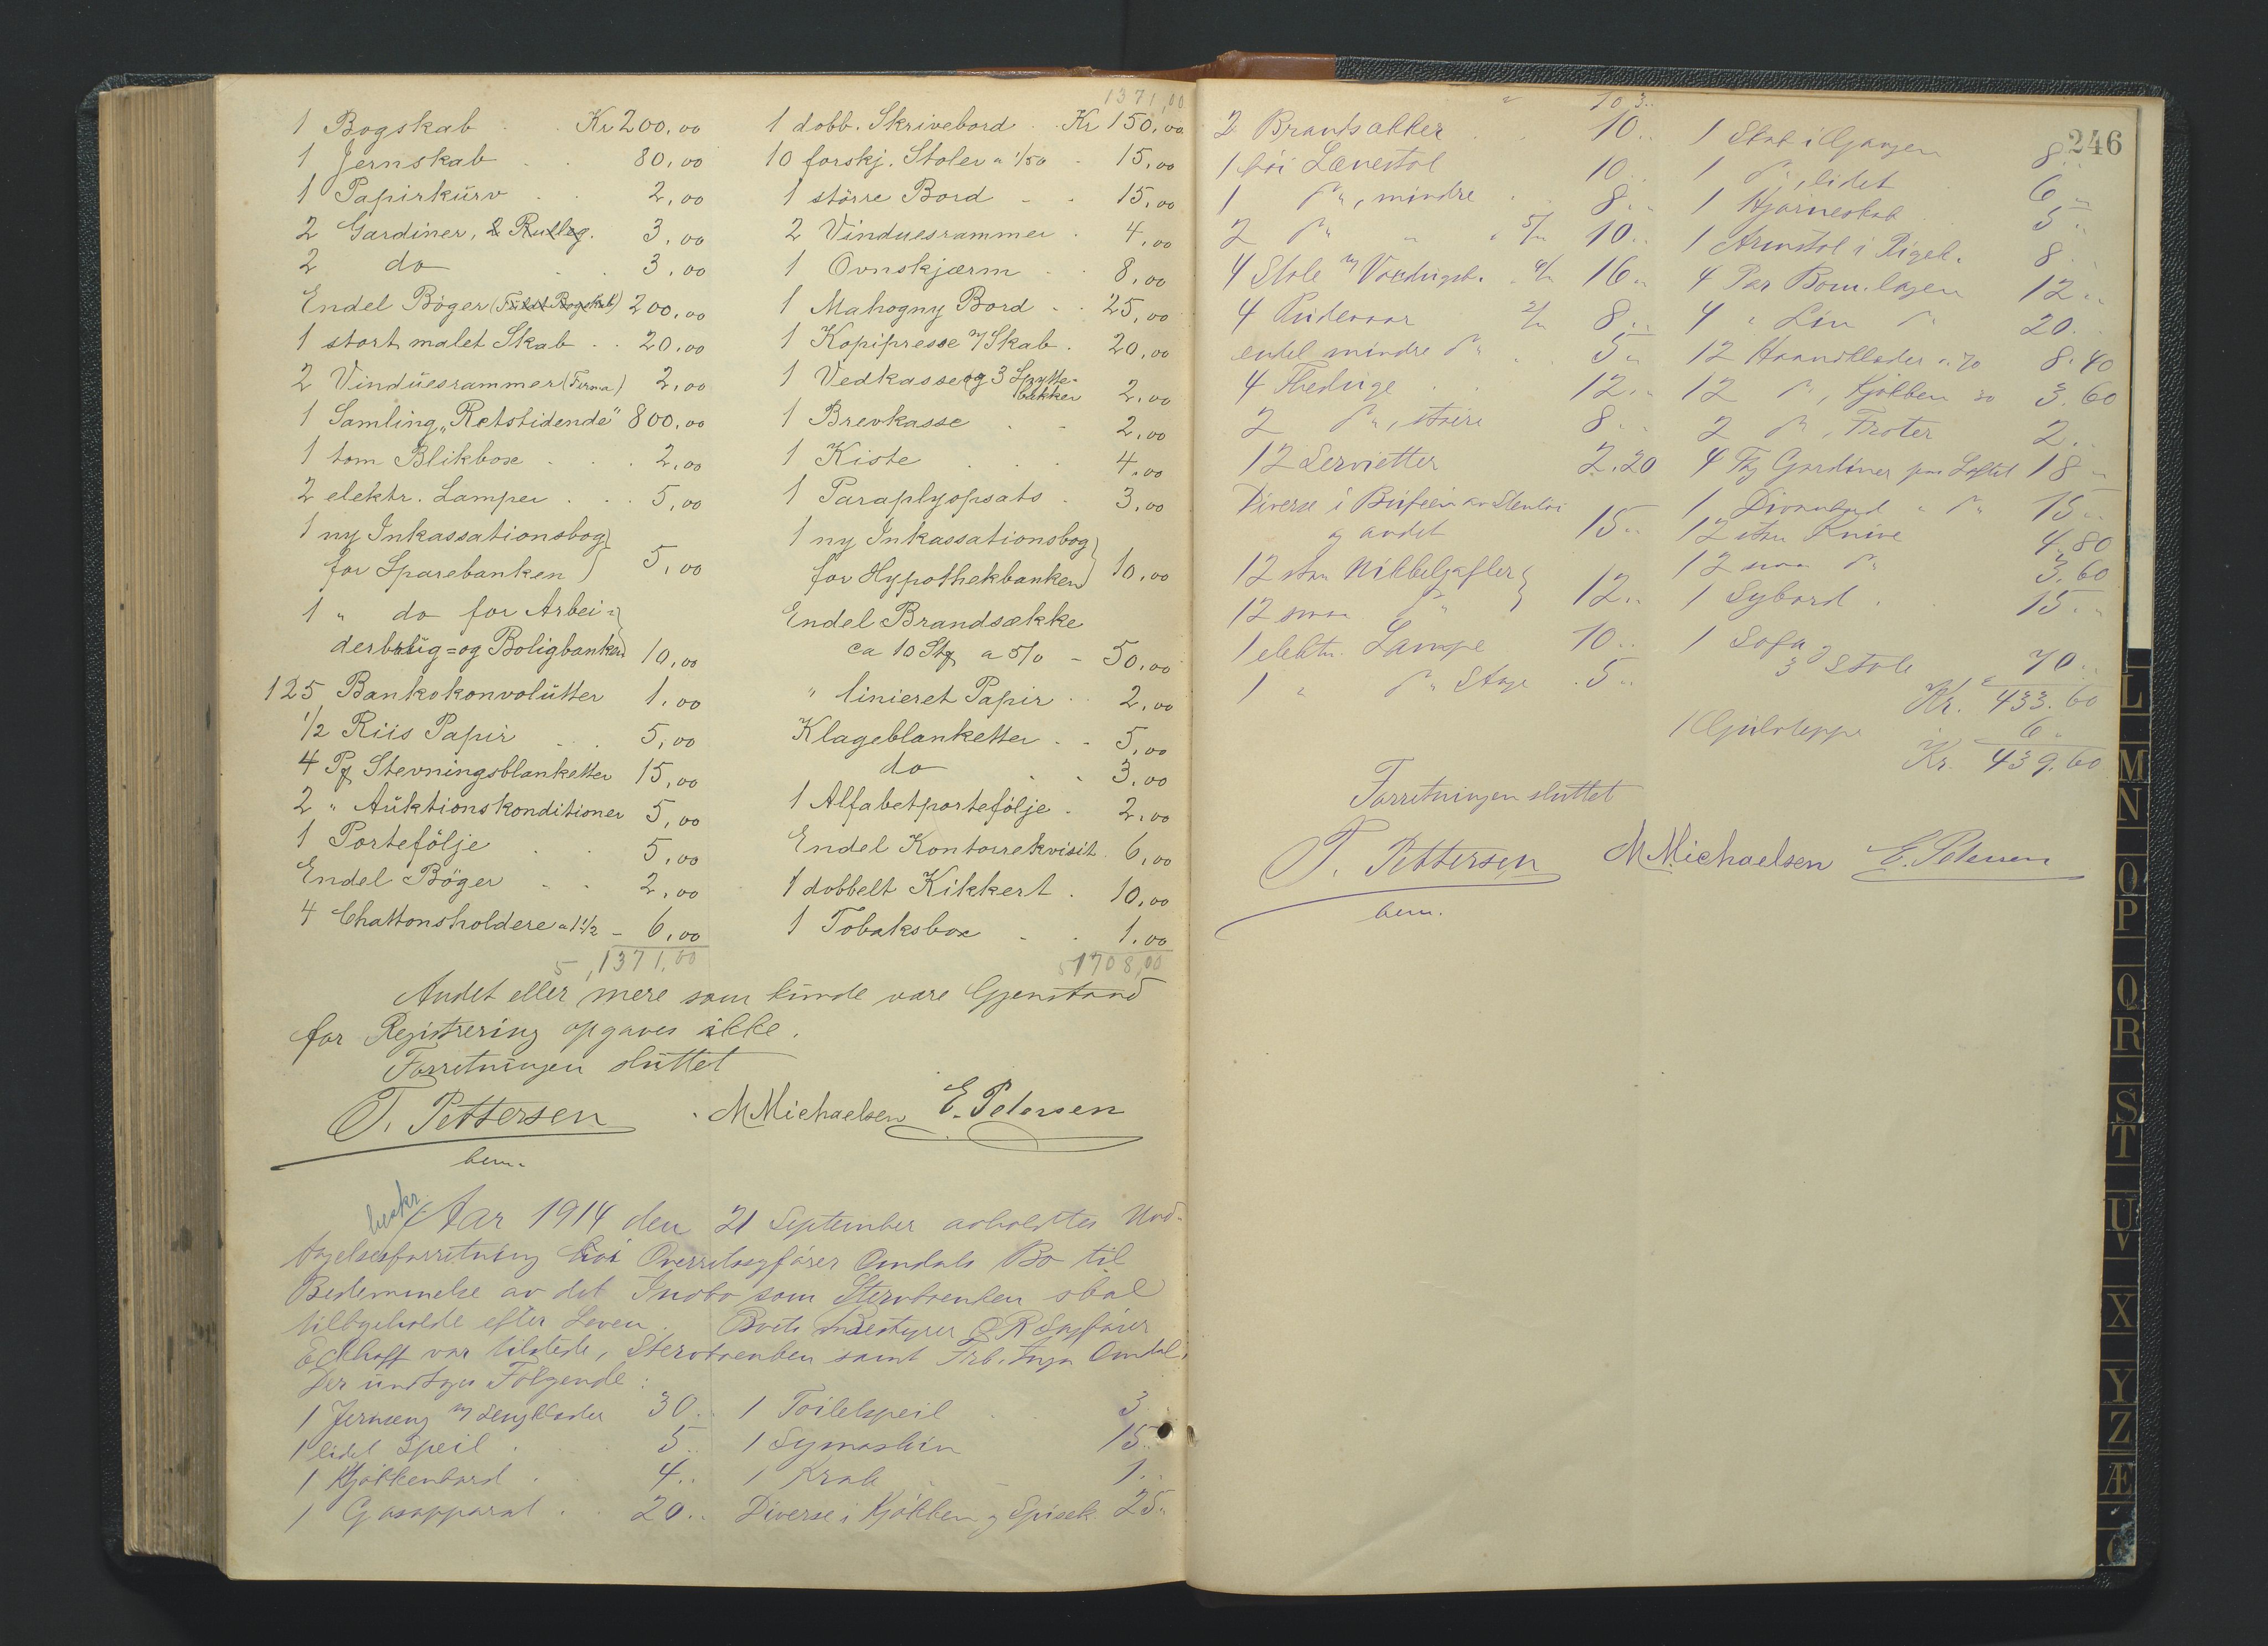 1 Bogskab Kr 200,00
1 Jernskab 80,00
1 Papirkurv 2,00
2 Gardiner, 2 Rulleg. 3,00
2 do 3,00
Endel Böger 200,00
1 stort malet Skab 20,00
2 Vinduesrammer (Firma) 2,00
1 Samling „Retstidende" 800,00
1 tom Blikboxe 2,00
2 elektr. Lamper 5,00
1 ny Inkassationsbog
for Sparebanken) 5,00
1 " do for Arbei=
derbrug= og Boligbanken 10,00
125 Bankokonvolutter 1,00
1/2 Riis Papir 5,00
4 Pg Stevningsblanketter 15,00
2 " Auktionskonditioner 5,00
1 Portefölje 5,00
Endel Böger 2,00
4 Chattonsholdere a 1 1/2 - 6,00
1371,00
1371,00
1 dobb. Skrivebord Kr 150,00
10 forskj. Stoler a 1/50 - 15,00
1 större Bord - - 15,00
2 Vinduesrammer 4,00
1 Ovnskjærm 8,00
1 Mahogny Bord - 25,00
1 Kopipresse m/ Skab 20,00
1 Vedkasse og 3 Spytte-
bakker 2,00
1 Brevkasse 2,00
1 Kiste 4,00
1 Paraplyopsats 3,00
1 ny Inkassationsbog
for Hypothekbanken) 10,00
Endel Brandsække
ca 10 Stg a 5/0 - 50,00
" linieret Papir 2,00
Klageblanketter - - 5,00
do 3,00
1 Alfabetportefölje 2,00
Endel Kontorrekvisit. 6,00
1 dobbelt Kikkert 10,00
1 Tobaksboxe 1,00
1708,00
Andet eller mere som kunde være Gjenstand
for Registrering opgaves ikke.
Forretningen sluttet
T. Pettersen M Michaelsen E. Petersen
bem.
Aar 1914 den 21 September avholdtes Und-
tagelsesforretning hos Overretssagfører Omdals Bo til
Bedømmelse av det Indbo som Stervboenken skal
tilbageholde efter Loven. Boets Bestyrer O R Sagfører
Eckhoff var tilstede, Stervboenken samt Frk. Inga Omdal.
Der undtages Følgende:
1 Jernseng m/ Sengklæder 30..
1 lidet Speil 5..
1 Kjökkenbord 4..
1 Gasapparat 20..
1 Toiletspeil 3
1 Symaskin 15..
1 Krak 1..
Diverse i Kjökken og Spisek. 25..
246
2 Brandsækker 10..
1 høi Lænestol 10..
1 do, mindre 8..
2 do 5/ 10..
4 Stole 4/ 16..
4 Pudevaar 2/ 8..
endel mindre do 5..
4 12..
2 do, større 8..
12 Servietter 2.20
Diverse i Bufeen av Stentøi
og andet 15..
12 store Nikkelgafler
12 smaa do 12..
1 elektr. Lampe 10..
1 " do Stage 5..
1 Skab i Gangen 8..
1 do, lidet 6..
1 Hjørneskab 5..
1 Armstol i Pigek. 8..
4 Par Bom. lagen 12..
4 " Lin do 20..
12 Haandklæder a 70 8.40
12 do, Kjökken 30 3.60
2 do, Froter 2..
4 Fag Gardiner paa Loftet 18..
1 Divanbord " do 15..
12 store Knive 4.80
12 smaa do 3.60
1 Sybord 15..
1 Sofa
3 Stole 70..
Kr. 433.60
1 Gulvteppe 6..
Kr. 439.60
Forretningen sluttet
T. Pettersen M Michaelsen E. Petersen
bem.
L
M
N
O
P
Q
R
S
T
U
V
X
Y
Z
Æ